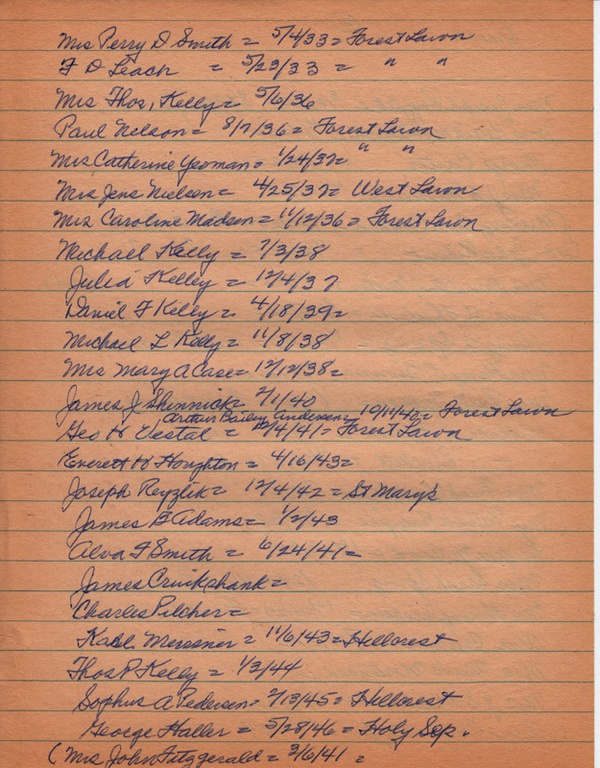 Mrs Perry D Smith = 5/4/33 = Forest Lawn
F D Leach = 5/23/33 = " "
Mrs Thos, Kelly = 5/6/36
Paul Nelson = 8/7/36 = Forest Lawn
Mrs Catherine Yeoman = 1/24/37 = " "
Mrs Jens Nielsen = 4/25/37 = West Lawn
Mrs Caroline Madsen = 11/12/36 = Forest Lawn
Michael Kelly = 7/3/38
Julia Kelley = 12/4/37
Daniel F Kelly = 4/18/39 =
Michael L Kelly = 11/8/38
Mrs Mary A Case = 12/12/38 =
James J Shennick = 2/1/40
Arthur Bailey Andersen = 10/11/40 = Forest Lawn
Geo H Vestal = /4/41 = Forest Lawn
Everett H Houghton = 4/16/43 =
Joseph Reyzlik = 12/4/42 = St Mary's
James B Adams = 1/2/43
Alva F Smith = 6/24/41 =
James Cruikshank =
Charles Pilcher =
Messner = 11/6/43 = Hillcrest
Thos P Kelly = 1/3/44
Sophus A Pedersen = 2/13/45 = Hillcrest
George Haller = 5/28/46 = Holy Sep.
( Mrs John Fitzgerald = 3/6/41 =